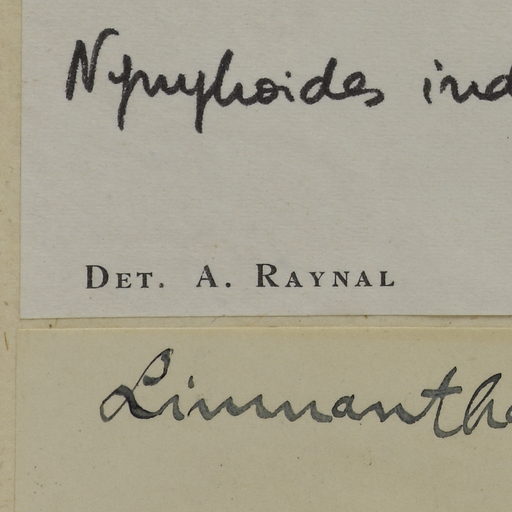 Nymphoides ind
DET. A. RAYNAL
Limnantha